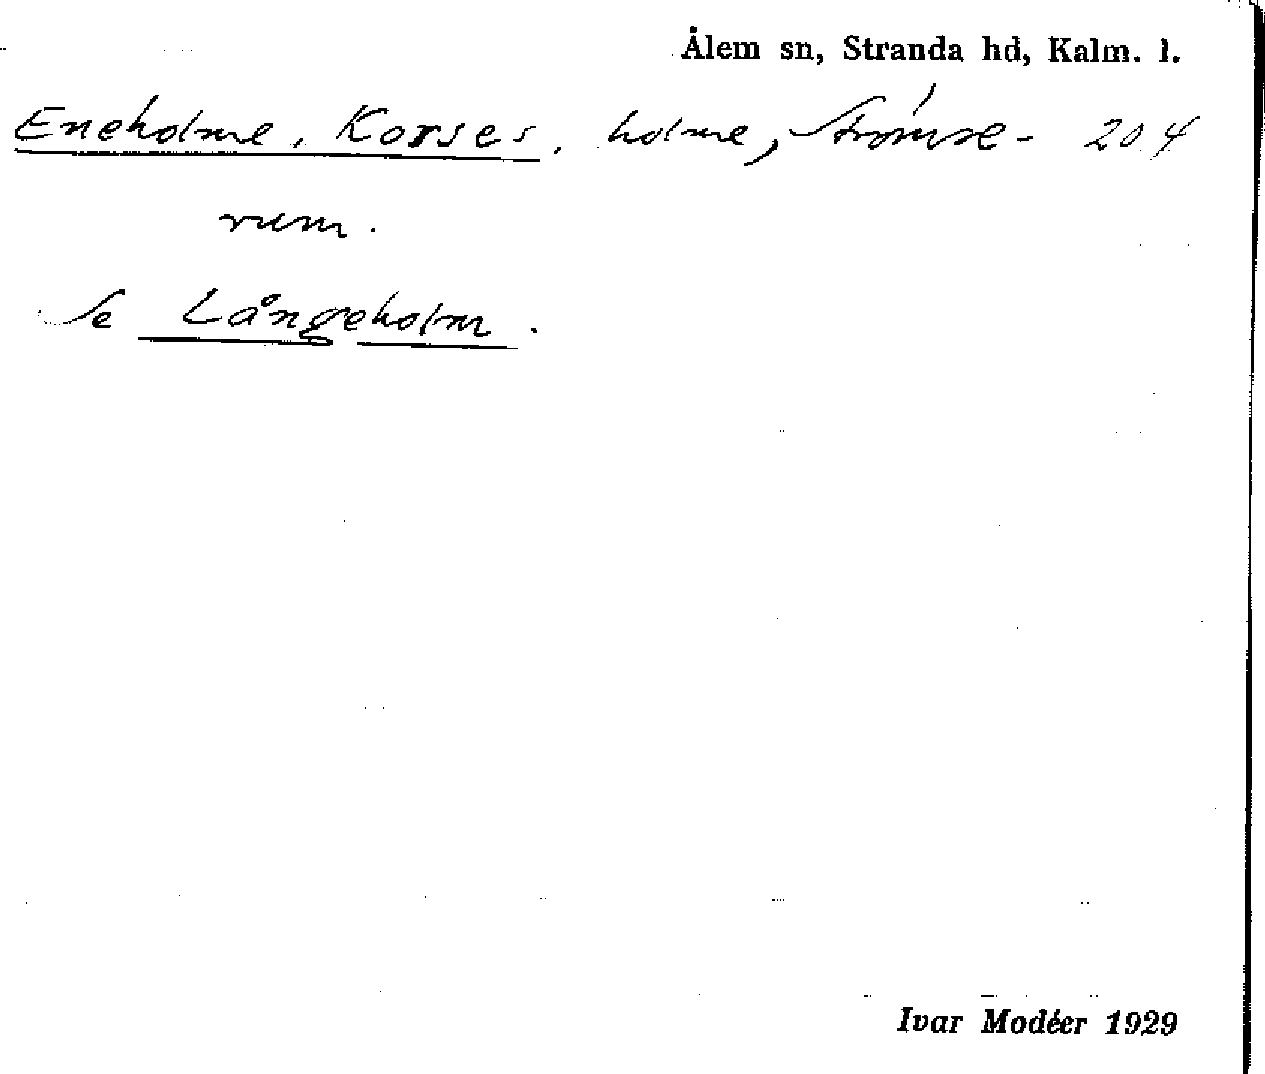 Ålem sn, Stranda hd, Kalm. l.
Eneholme, Korses, holme, Strömse- 204
rum.
Se Långeholm.
Ivar Modéer 1929